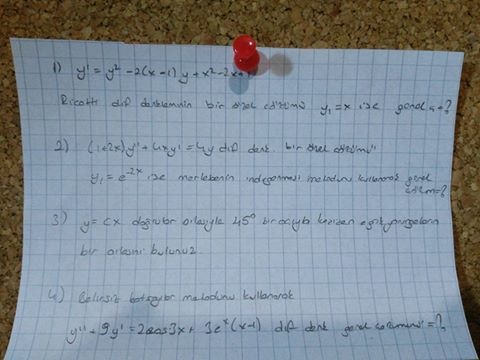 1) y' = y² - 2(x-1)y + x² - 2x
Riccati dif denkleminin bir özel çözümü y₁ = x ise genel ç=?
2) (1+2x)y'' + 4xy' = 4y dif denk. bir özel çözümü
y₁ = e⁻²ˣ ise mertebenin indirgenmesi metodunu kullanarak genel
çözüm=?
3) y = cx doğrular ailesiyle 45° bir açıyla kesişen eğik yörüngelerin
bir ailesini bulunuz.
4) Belirsiz katsayılar metodunu kullanarak
y'' + 9y' = 2cos3x + 3eˣ(x-1) dif denk genel çözümünü=?